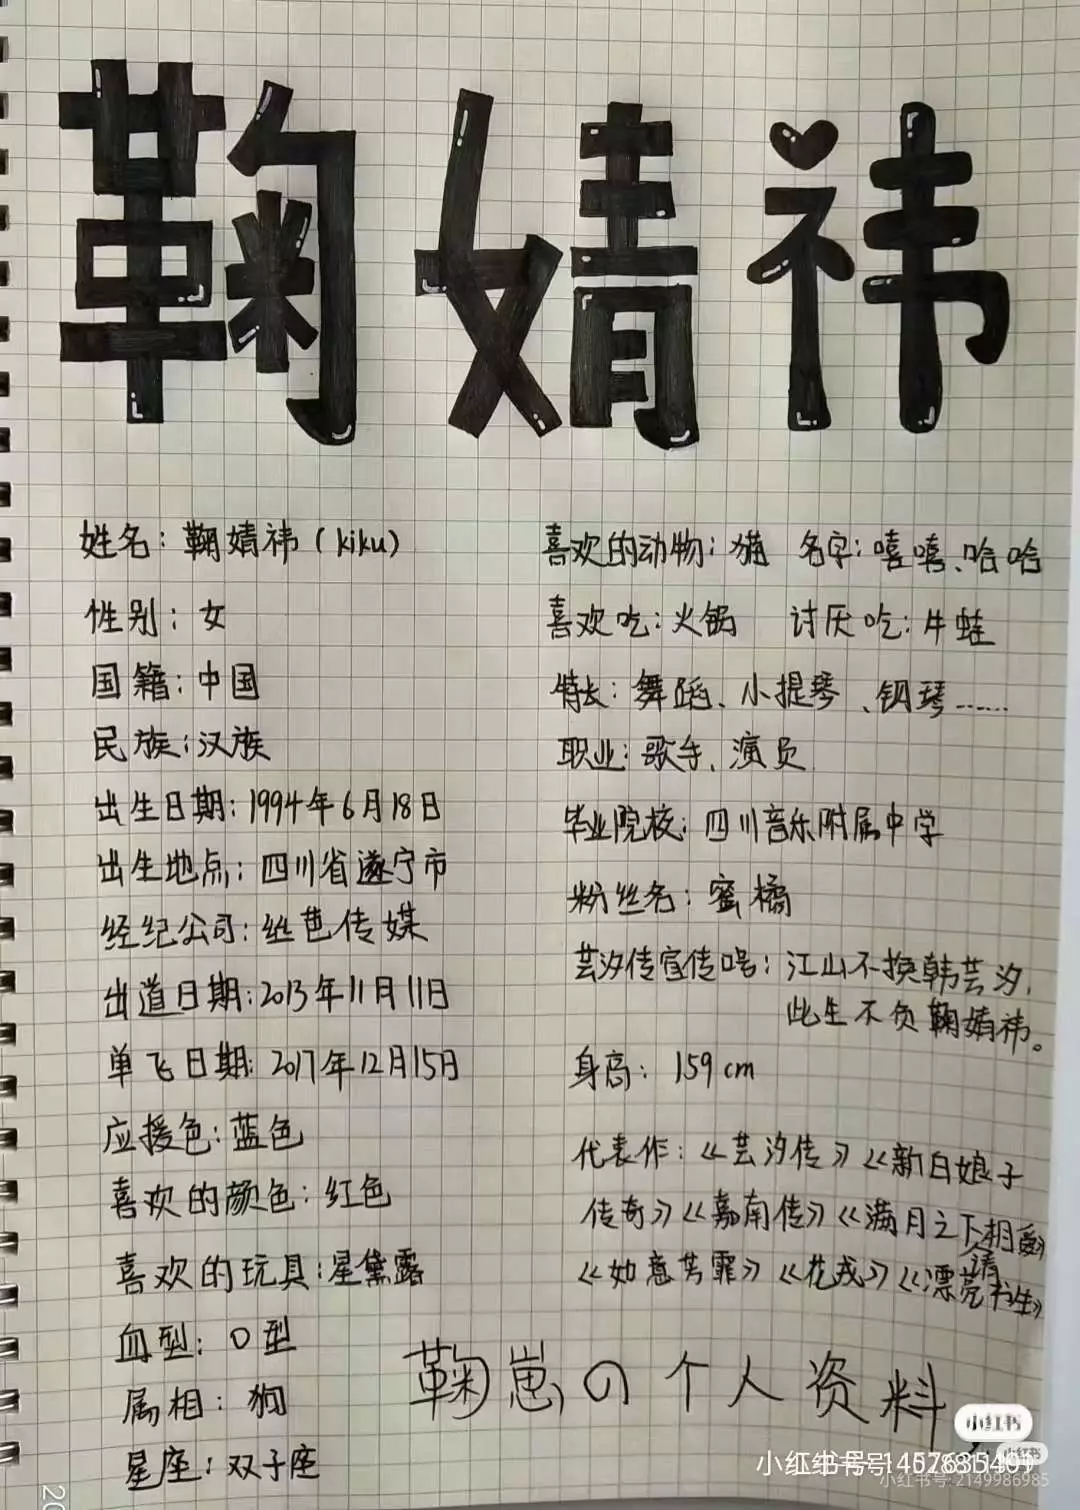 鞠婧祎
姓名：鞠婧祎（kiku）
性别：女
国籍：中国
民族：汉族
出生日期：1994年6月18日
出生地点：四川省遂宁市
经纪公司：丝芭传媒
出道日期：2013年11月11日
单飞日期：2017年12月15日
应援色：蓝色
喜欢的颜色：红色
喜欢的玩具：星黛露
血型：O型
属相：狗
星座：双子座
喜欢的动物：猫 名字：嘻嘻、哈哈
喜欢吃：火锅 讨厌吃：牛蛙
特长：舞蹈、小提琴、钢琴……
职业：歌手、演员
毕业院校：四川音乐附属中学
粉丝名：蜜橘
芸汐传宣传号：江山不换韩芸汐，
此生不负鞠婧祎。
身高：159cm
代表作：《芸汐传》《新白娘子
传奇》《嘉南传》《满月之下请相爱》
《如意芳霏》《花戎》《漂亮书生》
鞠崽の个人资料
小红书
小红书
小红书号:2149986985